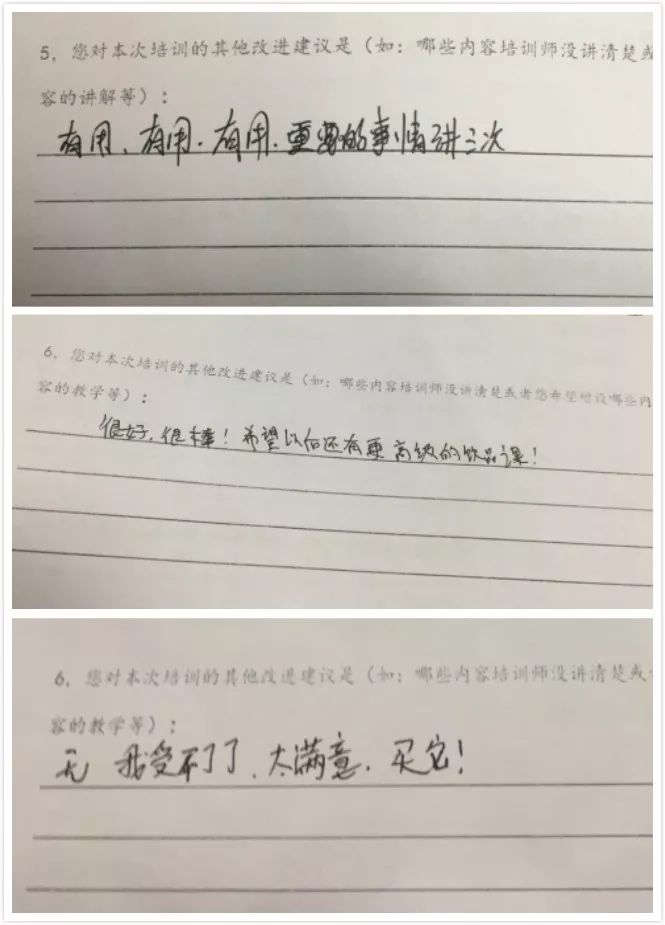 5, 您对本次培训的其他改进建议是（如：哪些内容培训师没讲清楚或
容的讲解等）：
有用、有用.有用.重要的事情讲三次
6, 您对本次培训的其他改进建议是（如：哪些内容培训师没讲清楚或者您希望增设哪些内
容的教学等）：
很好，很棒！希望以后还有更高级的饮品课！
6, 您对本次培训的其他改进建议是（如：哪些内容培训师没讲清楚或
容的教学等）：
无 我受不了了，太满意，买它！